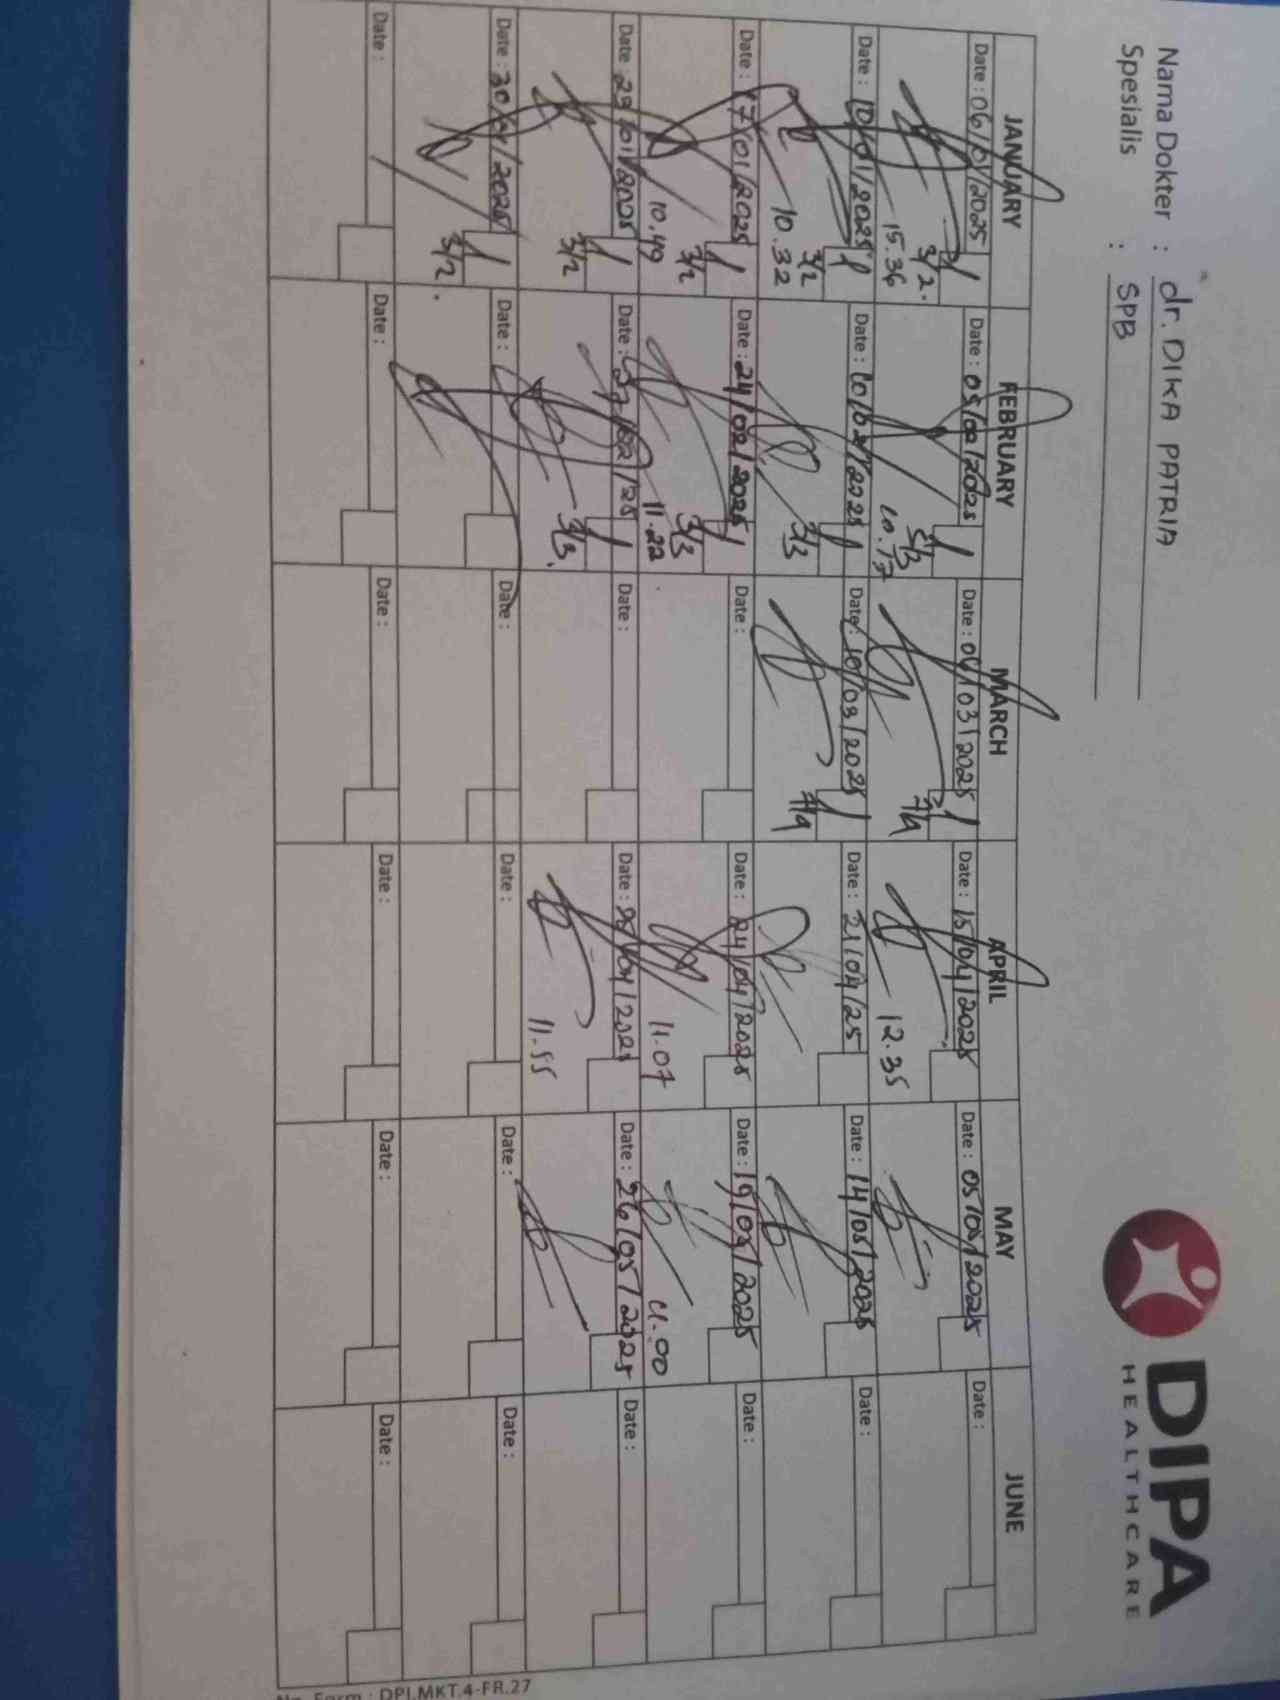 Nama Dokter : dr. DIKA PATRIA
Spesialis : SPB
DIPA
HEALTHCARE
JANUARY FEBRUARY MARCH APRIL MAY JUNE
Date : 06/01/2025 Date : 05/02/2025 Date : 06/03/2025 Date : 15/04/2025 Date : 05/05/2025 Date :
3/2. 15.36 5/3 10.17 12.35
Date : 10/01/2025 Date : 10/02/2025 Date : 10/03/2025 Date : 21/04/25 Date : 14/05/2025 Date :
3/2 10.32 3/3
Date : 17/01/2025 Date : 24/02/2025 Date : Date : 24/04/2025 Date : 19/05/2025 Date :
3/2 10.49 3/3 11.22 11.07 11.00
Date : 29/01/2025 Date : Date : Date : Date : 26/05/2025 Date :
3/2 3/3. 11.55
Date : 30/01/2025 Date : Date : Date : Date : Date :
3/2.
Date : Date : Date : Date : Date : Date :
No. Form : DPI.MKT.4-FR.27